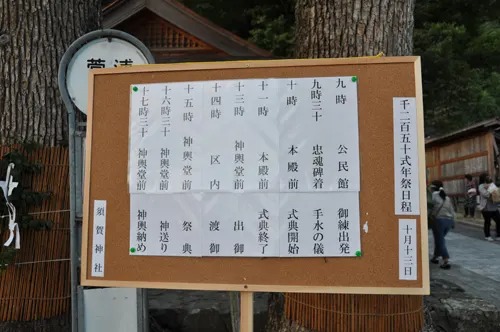 千二百五十弐年祭日程
十月十三日
九時 公民館 御練出発
九時三十 忠魂碑着 手水の儀
十時 本殿前 式典開始
十一時 本殿前 式典終了
十三時 神輿堂前 出御
十四時 区内 渡御
十五時 神輿堂前 祭典
十六時三十 神輿堂前 神送り
十七時三十 神輿堂前 神輿納め
須賀神社
菅浦